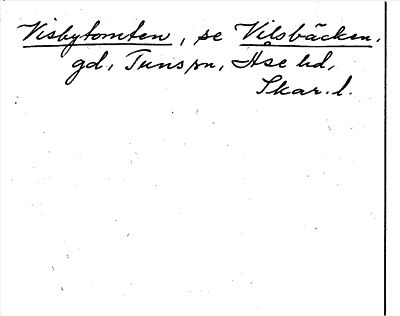 Visbytomten, se Vilsbäcken.
gd, Tuns sn, Åse hd,
Skar. l.